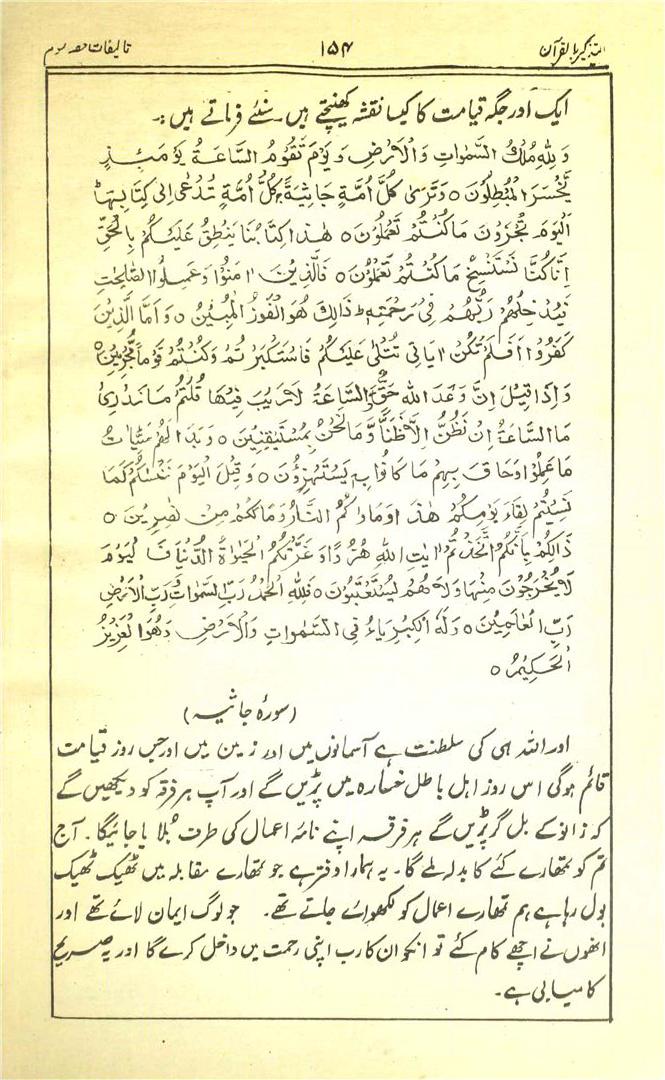 التذکیر بالقرآن ۱۵۴ تالیفات حصہ سوم
ایک اور جگہ قیامت کا کیسا نقشہ کھینچتے ہیں۔ سنئے فرماتے ہیں :۔
وَلِلّٰهِ مُلْكُ السَّمٰوَاتِ وَالْاَرْضِ وَيَوْمَ تَقُوْمُ السَّاعَةُ يَوْمَئِذٍ
يَّخْسَرُ الْمُبْطِلُوْنَ ٥ وَتَرٰى كُلَّ اُمَّةٍ جَاثِيَةً كُلُّ اُمَّةٍ تُدْعٰى اِلٰى كِتَابِهَا
اَلْيَوْمَ تُجْزَوْنَ مَا كُنْتُمْ تَعْمَلُوْنَ ٥ هٰذَا كِتَابُنَا يَنْطِقُ عَلَيْكُمْ بِالْحَقِّ
اِنَّا كُنَّا نَسْتَنْسِخُ مَا كُنْتُمْ تَعْمَلُوْنَ ٥ فَالَّذِيْنَ اٰمَنُوْا وَعَمِلُوا الصّٰلِحٰتِ
فَيُدْخِلُهُمْ رَبُّهُمْ فِيْ رَحْمَتِهٖ ط ذَالِكَ هُوَ الْفَوْزُ الْمُبِيْنُ ٥ وَاَمَّا الَّذِيْنَ
كَفَرُوْا اَفَلَمْ تَكُنْ اٰيَاتِيْ تُتْلٰى عَلَيْكُمْ فَاسْتَكْبَرْتُمْ وَكُنْتُمْ قَوْمًا مُّجْرِمِيْنَ ٥
وَاِذَا قِيْلَ اِنَّ وَعْدَ اللهِ حَقٌّ وَّالسَّاعَةُ لَا رَيْبَ فِيْهَا قُلْتُمْ مَّا نَدْرِيْ
مَا السَّاعَةُ اِنْ نَّظُنُّ اِلَّا ظَنًّا وَّمَا نَحْنُ بِمُسْتَيْقِنِيْنَ ٥ وَبَدَا لَهُمْ سَيِّئَاتُ
مَا عَمِلُوْا وَحَاقَ بِهِمْ مَا كَانُوْا بِهٖ يَسْتَهْزِؤُنَ ٥ وَقِيْلَ الْيَوْمَ نَنْسٰكُمْ كَمَا
نَسِيْتُمْ لِقَاءَ يَوْمِكُمْ هٰذَا وَمَاْوٰكُمُ النَّارُ وَمَا لَكُمْ مِنْ نّٰصِرِيْنَ ٥
ذَالِكُمْ بِاَنَّكُمُ اتَّخَذْتُمْ اٰيٰتِ اللهِ هُزُوًا وَّغَرَّتْكُمُ الْحَيٰوةُ الدُّنْيَا فَالْيَوْمَ
لَا يُخْرَجُوْنَ مِنْهَا وَلَا هُمْ يُسْتَعْتَبُوْنَ ٥ فَلِلّٰهِ الْحَمْدُ رَبِّ السَّمٰوَاتِ وَرَبِّ الْاَرْضِ
رَبِّ الْعَالَمِيْنَ ٥ وَلَهُ الْكِبْرِيَاءُ فِي السَّمٰوَاتِ وَالْاَرْضِ وَهُوَ الْعَزِيْزُ
الْحَكِيْمُ ٥
(سورۂ جاثیہ)
اور اللہ ہی کی سلطنت ہے آسمانوں میں اور زمین میں اور جس روز قیامت
قائم ہوگی اس روز اہل باطل خسارہ میں پڑیں گے اور آپ ہر فرقہ کو دیکھیں گے
کہ زانو کے بل گر پڑیں گے ہر فرقہ اپنے نامۂ اعمال کی طرف بُلایا جائیگا۔ آج
تم کو تمھارے کئے کا بدلہ ملے گا۔ یہ ہمارا دفتر ہے جو تمھارے مقابلہ میں ٹھیک ٹھیک
بول رہا ہے ہم تمھارے اعمال کو لکھواتے جاتے تھے۔ جو لوگ ایمان لائے تھے اور
انھوں نے اچھے کام کئے تو انکو ان کا رب اپنی رحمت میں داخل کرے گا اور یہ صریح
کامیابی ہے۔